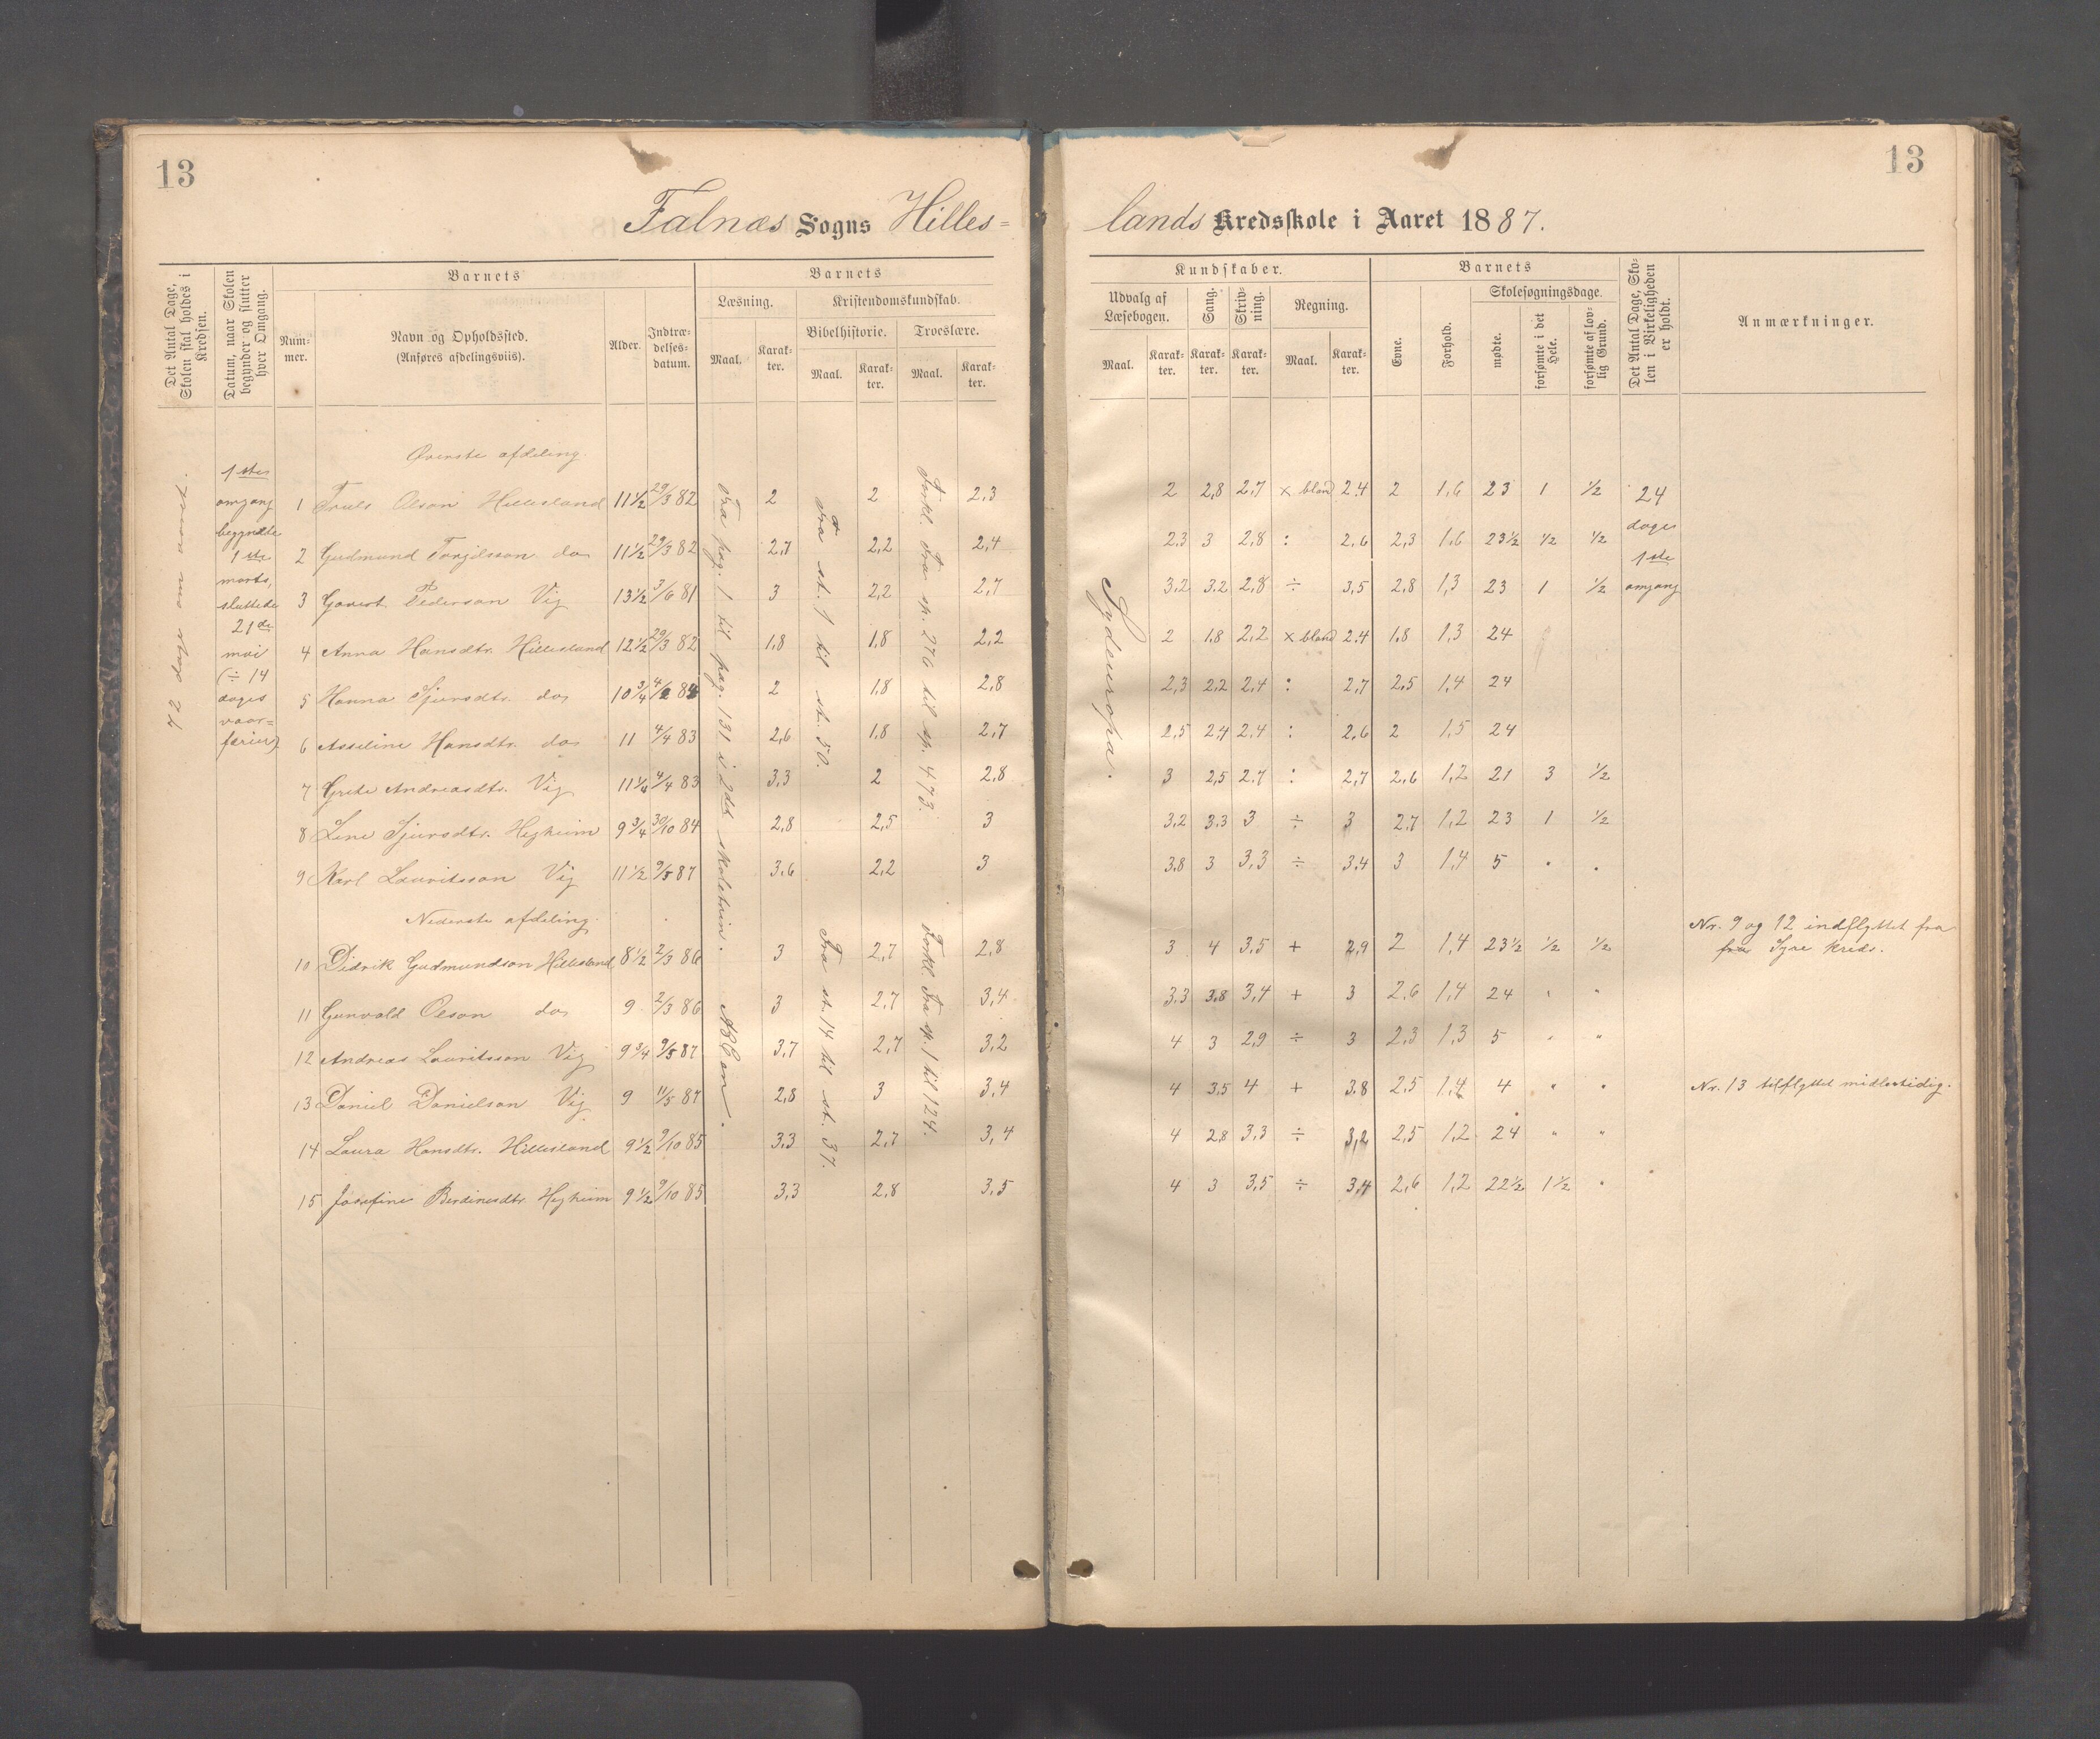 13
13
Falnæs Sogns Hilles=
lands Kredsskole i Aaret 1887.
Det Antal Dage, Skolen skal holdes i Kredsen.
Datum, naar Skolen begynder og slutter hver Omgang.
Barnets
Num-mer.
Navn og Opholdssted.
(Anføres afdelingsviis).
Alder.
Indtræ-delses-datum.
Barnets
Læsning.
Kristendomskundskab.
Bibelhistorie.
Troeslære.
Maal.
Karak-ter.
Maal.
Karak-ter.
Maal.
Karak-ter.
Kundskaber.
Udvalg af Læsebogen.
Sang.
Skriv-ning.
Regning.
Maal.
Karak-ter.
Karak-ter.
Karak-ter.
Maal.
Karak-ter.
Barnets
Evne.
Forhold.
Skolesøgningsdage.
mødte.
forsømte i det Hele.
forsømte af lov-lig Grund.
Det Antal Dage, Sko-len i Virkeligheden er holdt.
Anmærkninger.
72 dage om aaret.
1ste
omgang
begyndte
1ste
marts,
sluttede
21de
mai
(÷ 14
dages
vaar=
ferier)
Øverste afdeling.
1 Truls Olson Hillesland 11½ 29/3 82 2 2 2,3 2 2,8 2,7 × bland 2.4 2 1,6 23 1 ½
2 Gudmund Torgilsson do. 11½ 29/3 82 2,7 2,2 2,4 2.3 3 2,8 : 2.6 2,3 1,6 23½ ½ ½
3 Govert Pederson Vig 13½ 3/6 81 3 2,2 2,7 3.2 3.2 2,8 ÷ 3,5 2,8 1,3 23 1 ½
4 Anna Hansdtr. Hillesland 12½ 29/3 82 1,8 1,8 2,2 2 1.8 2,2 × bland 2.4 1.8 1,3 24
5 Hanna Sjursdtr. do. 10¾ 84 2 1,8 2,8 2,3 2,2 2,4 : 2,7 2,5 1,4 24
6 Asseline Hansdtr. do. 11 4/4 83 2,6 1,8 2,7 2,5 2,4 2,4 : 2,6 2 1,5 24
7 Grete Andreasdtr. Vig 4/4 83 3,3 2 2,8 3 2,5 2.7 : 2,7 2,6 1,2 21 3 ½
8 Line Sjursdtr. Hegheim 9¾ 30/10 84 2,8 2,5 3 3,2 3.3 3 ÷ 3 2,7 1,2 23 1 ½
9 Karl Lauritsson Vig 11½ 9/5 87 3,6 2,2 3 3.8 3 3,3 ÷ 3,4 3 1,4 5 " "
Nederste afdeling.
10 Didrik Gudmundson Hillesland 8½ 2/3 86 3 2,7 2,8 3 4 3,5 + 2,9 2 1,4 23½ ½ ½
11 Gunvald Olson do. 9 2/3 86 3 2,7 3,4 3.3 3.8 3,4 + 3 2,6 1,4 24 " "
12 Andreas Lauritsson Vig 9¾ 9/5 87 3,7 2,7 3,2 4 3 2,9 ÷ 3 2,3 1,3 5 " "
13 Daniel Danielson Vig 9 11/5 87 2,8 3 3,4 4 3,5 4 + 3.8 2,5 1,4 4 " "
14 Laura Hansdtr. Hillesland 9½ 9/10 85 3.3 2,7 3,4 4 2,8 3,3 ÷ 3,2 2,5 1,2 24 " "
15 Josefine Berdinesdtr. Hegheim 9½ 9/10 85 3,3 2,8 3,5 4 3 3,5 ÷ 3,4 2,6 1,2 22½ 1½ "
Fra pag. 1 til pag. 131 i 2det skoletrin.
ABCen.
Fra st. 1 til st. 50.
Fra st. 14 til st. 37.
Forkl. Fra sp. 276 til sp. 473.
Forkl. Fra sp. 1 til 124.
Sydeuropa.
24
dage
1ste
omgang
Nr. 9 og 12 indflyttet fra
fra Syre kreds.
Nr. 13 tilflyttet midlertidig.